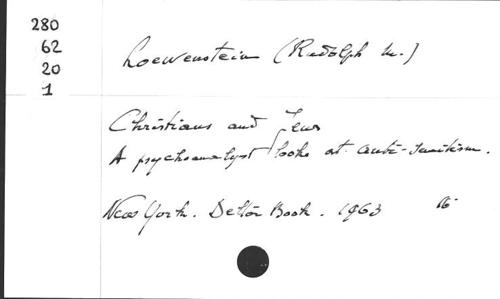 280
62
20
1
Loewenstein (Rudolph M.)
Christians and Jews
A psychoanalyst looks at anti-semitism.
New York. Delta Book. 1963